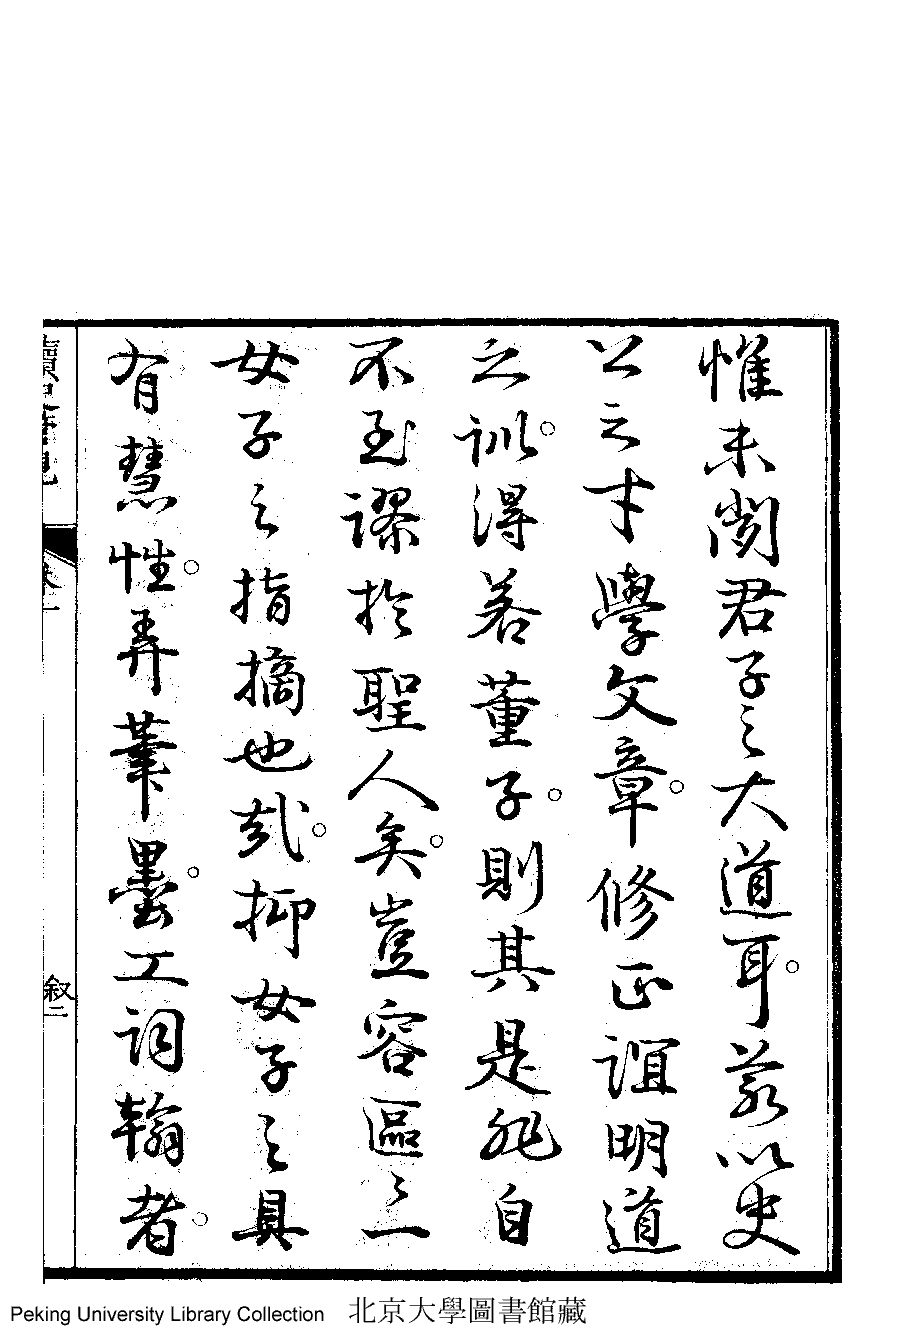 惟未聞君子之大道耳。若以史
公之才學文章。修正誼明道
之訓。得若董子。則其是非自
不至謬於聖人矣。豈容區區一
女子之指摘也哉。抑女子之具
有慧性。弄筆墨。工詞翰者。
讀史管見
卷一
敘二
Peking University Library Collection 北京大學圖書館藏